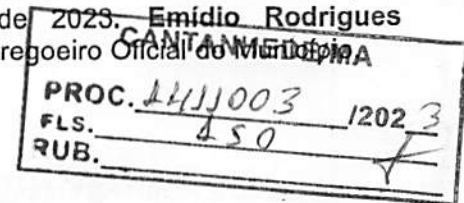 de 2023. Emídio Rodrigues
regoeiro Oficial do Município.
CANTANHEDE/MA
PROC. 1411003 /2023
FLS. 150
RUB.